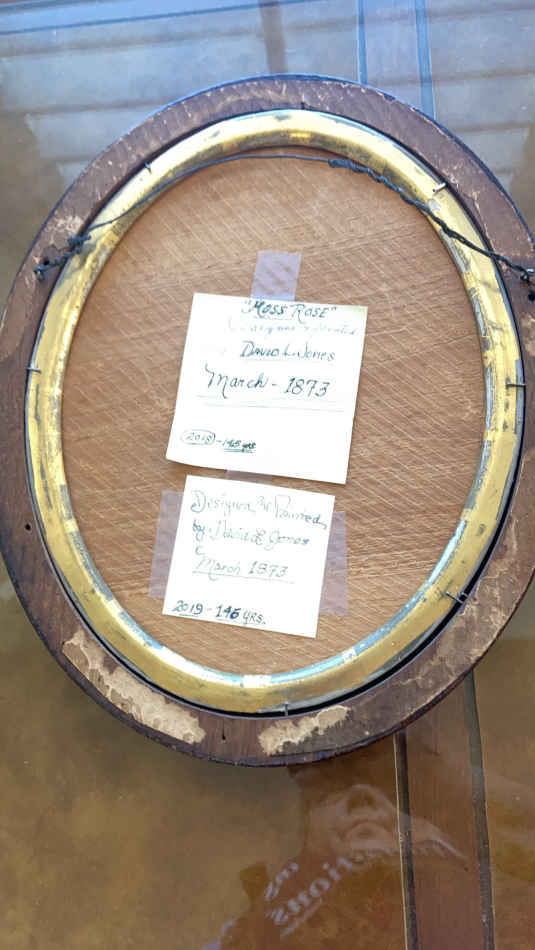 "MOSS ROSE"
Designed & Painted
DAVID L. JONES
March - 1873
2018 - 145 yrs
Designed & Painted
by David L Jones
March 1873
2019 - 146 YRS.